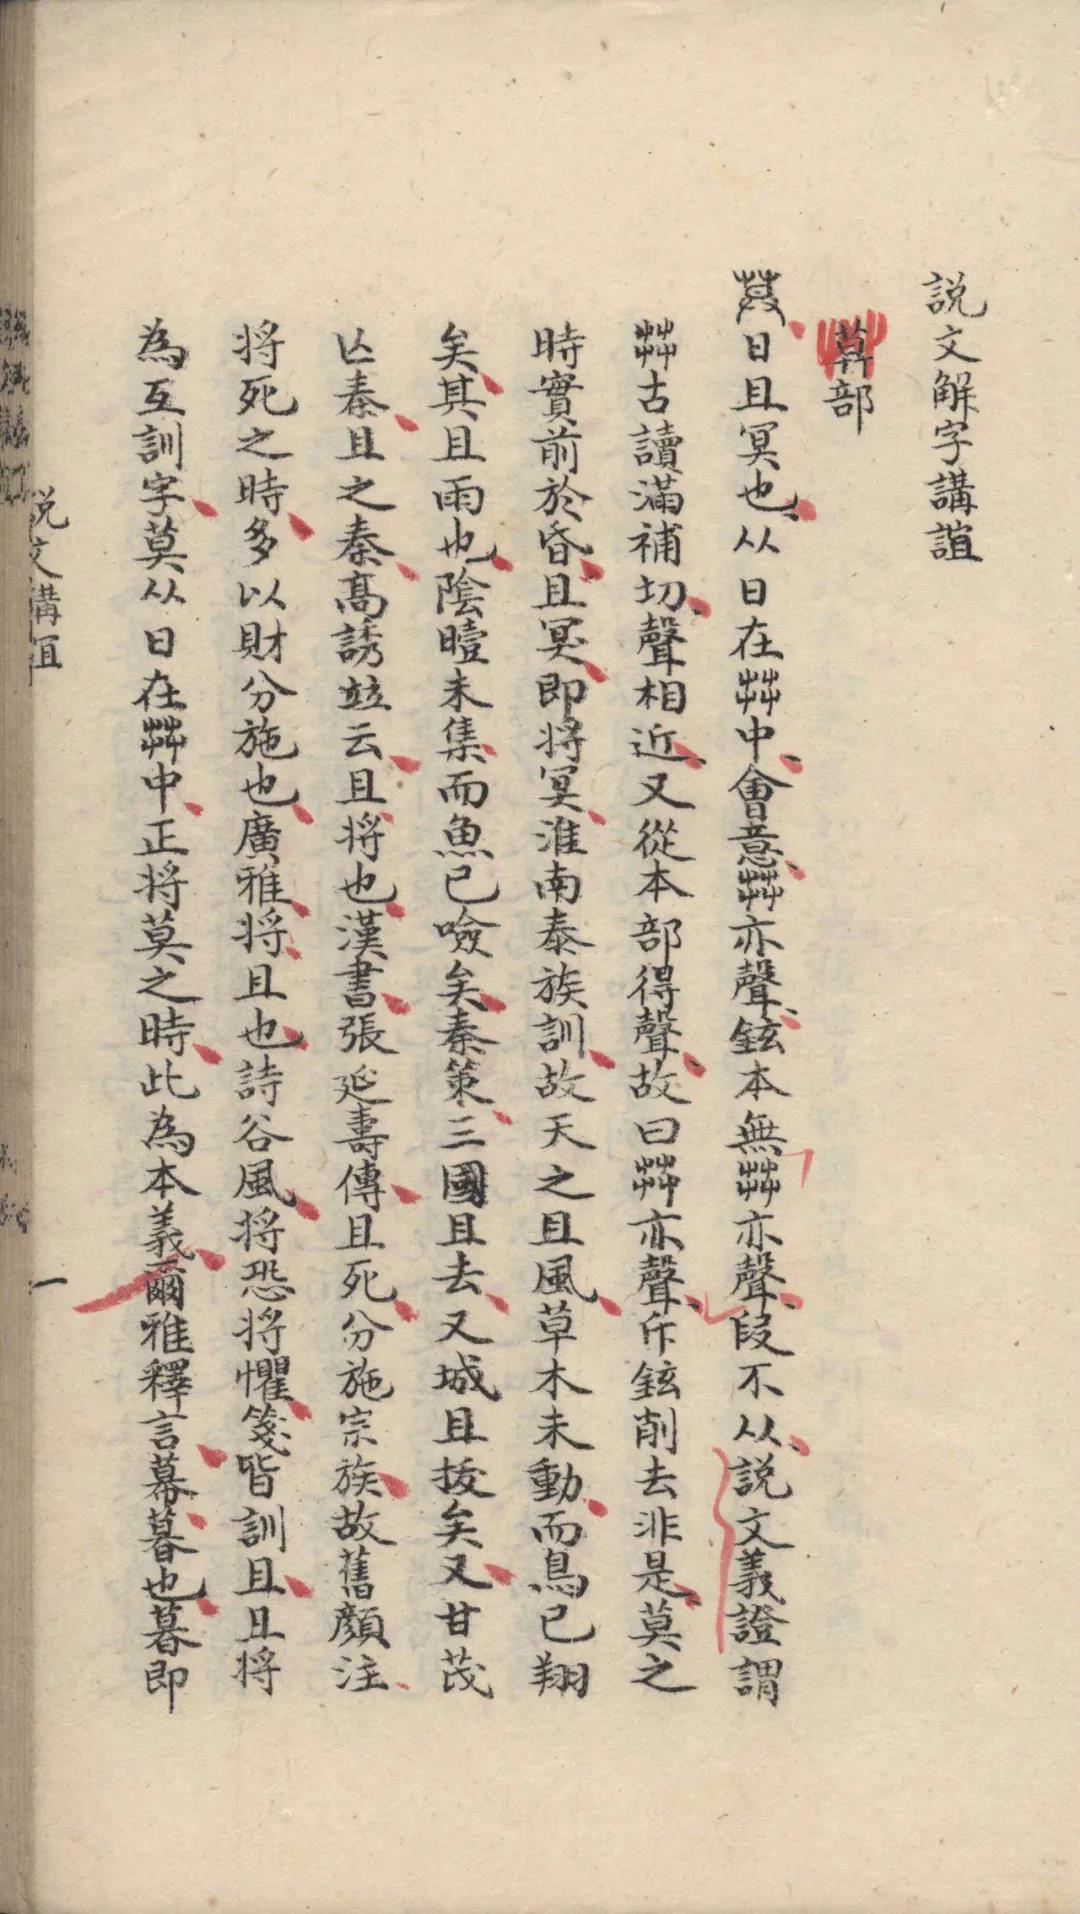 説文解字講誼
茻部
莫日且冥也从日在茻中會意茻亦聲鉉本無茻亦聲段不从説文義證謂
茻古讀滿補切聲相近又從本部得聲故曰茻亦聲斥鉉削去非是莫之
時實前於昏且冥即将冥淮南泰族訓故天之且風草木未動而鳥已翔
矣其且雨也陰曀未集而魚已噞矣秦策三國且去又城且拔矣又甘茂
亾秦且之秦高誘竝云且将也漢書張延壽傳且死分施宗族故舊顔注
将死之時多以財分施也廣雅将且也詩谷風将恐将懼箋皆訓且且将
為互訓字莫从日在茻中正将莫之時此為本義爾雅釋言幕暮也暮即
説文講誼
一